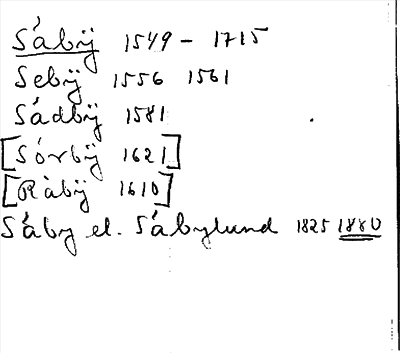 Sábÿ 1549 - 1715
Sebÿ 1556 1561
Sádbÿ 1581
[Sórbÿ 1621]
[Ràbÿ 1610]
Sáby el. Sábylund 1825 1880